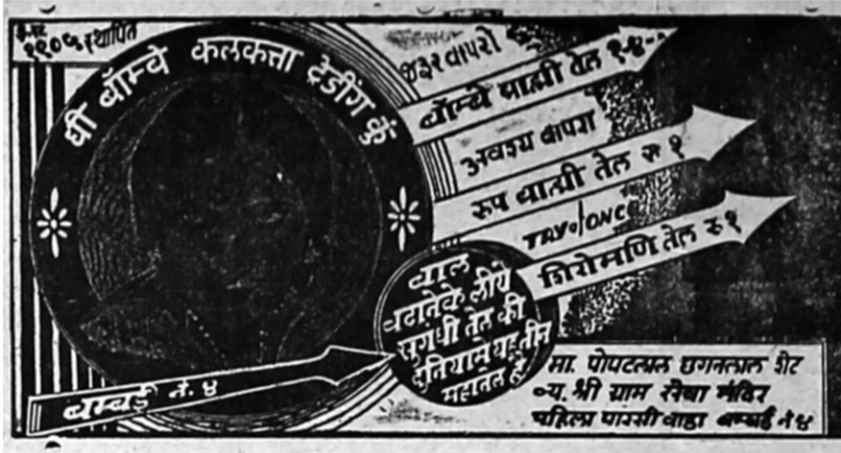 १९०५ स्थापित
धी बॉम्बे कलकत्ता ट्रेडींग कुं
जरूर वापरो
बॉम्बे ब्राह्मी तेल १-४-०
अवश्य वापरा
रुप ब्राह्मी तेल रु १
TRY ONCE
शिरोमणि तेल रु १
बाल
बढानेके लीये
सुगंधी तेल की
दुनियामे यह तीन
महातेल है
बम्बई नं. ४
मा. पोपटलाल छगनलाल शेट
व्य. श्री ग्राम सेवा मंदिर
पहिला पारसी वाडा बम्बई नं ४